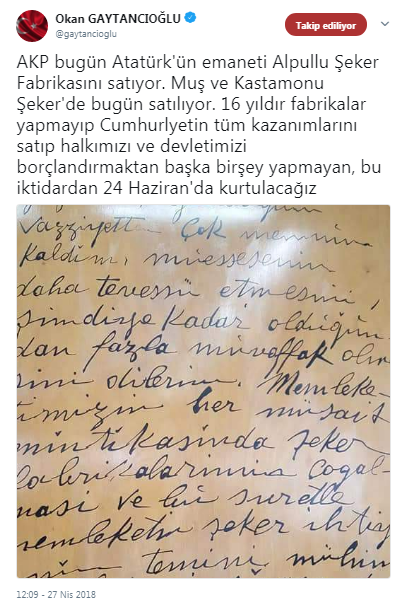 Okan GAYTANCIOĞLU
@gaytancioglu
Takip ediliyor
AKP bugün Atatürk'ün emaneti Alpullu Şeker
Fabrikasını satıyor. Muş ve Kastamonu
Şeker'de bugün satılıyor. 16 yıldır fabrikalar
yapmayıp Cumhurlyetin tüm kazanımlarını
satıp halkımızı ve devletimizi
borçlandırmaktan başka birşey yapmayan, bu
iktidardan 24 Haziran'da kurtulacağız
vazziyetten çok memnun
kaldım, müessesenin
daha tevessü etmesini,
şimdiye kadar olduğun
dan fazla muvaffak olma
sini dilerim. Memleke
timizin her müsait
mıntıkasında şeker
fabrikalarının çoğal-
ması ve bu suretle
memleketin şeker ihtiy
temini mühim
12:09 - 27 Nis 2018